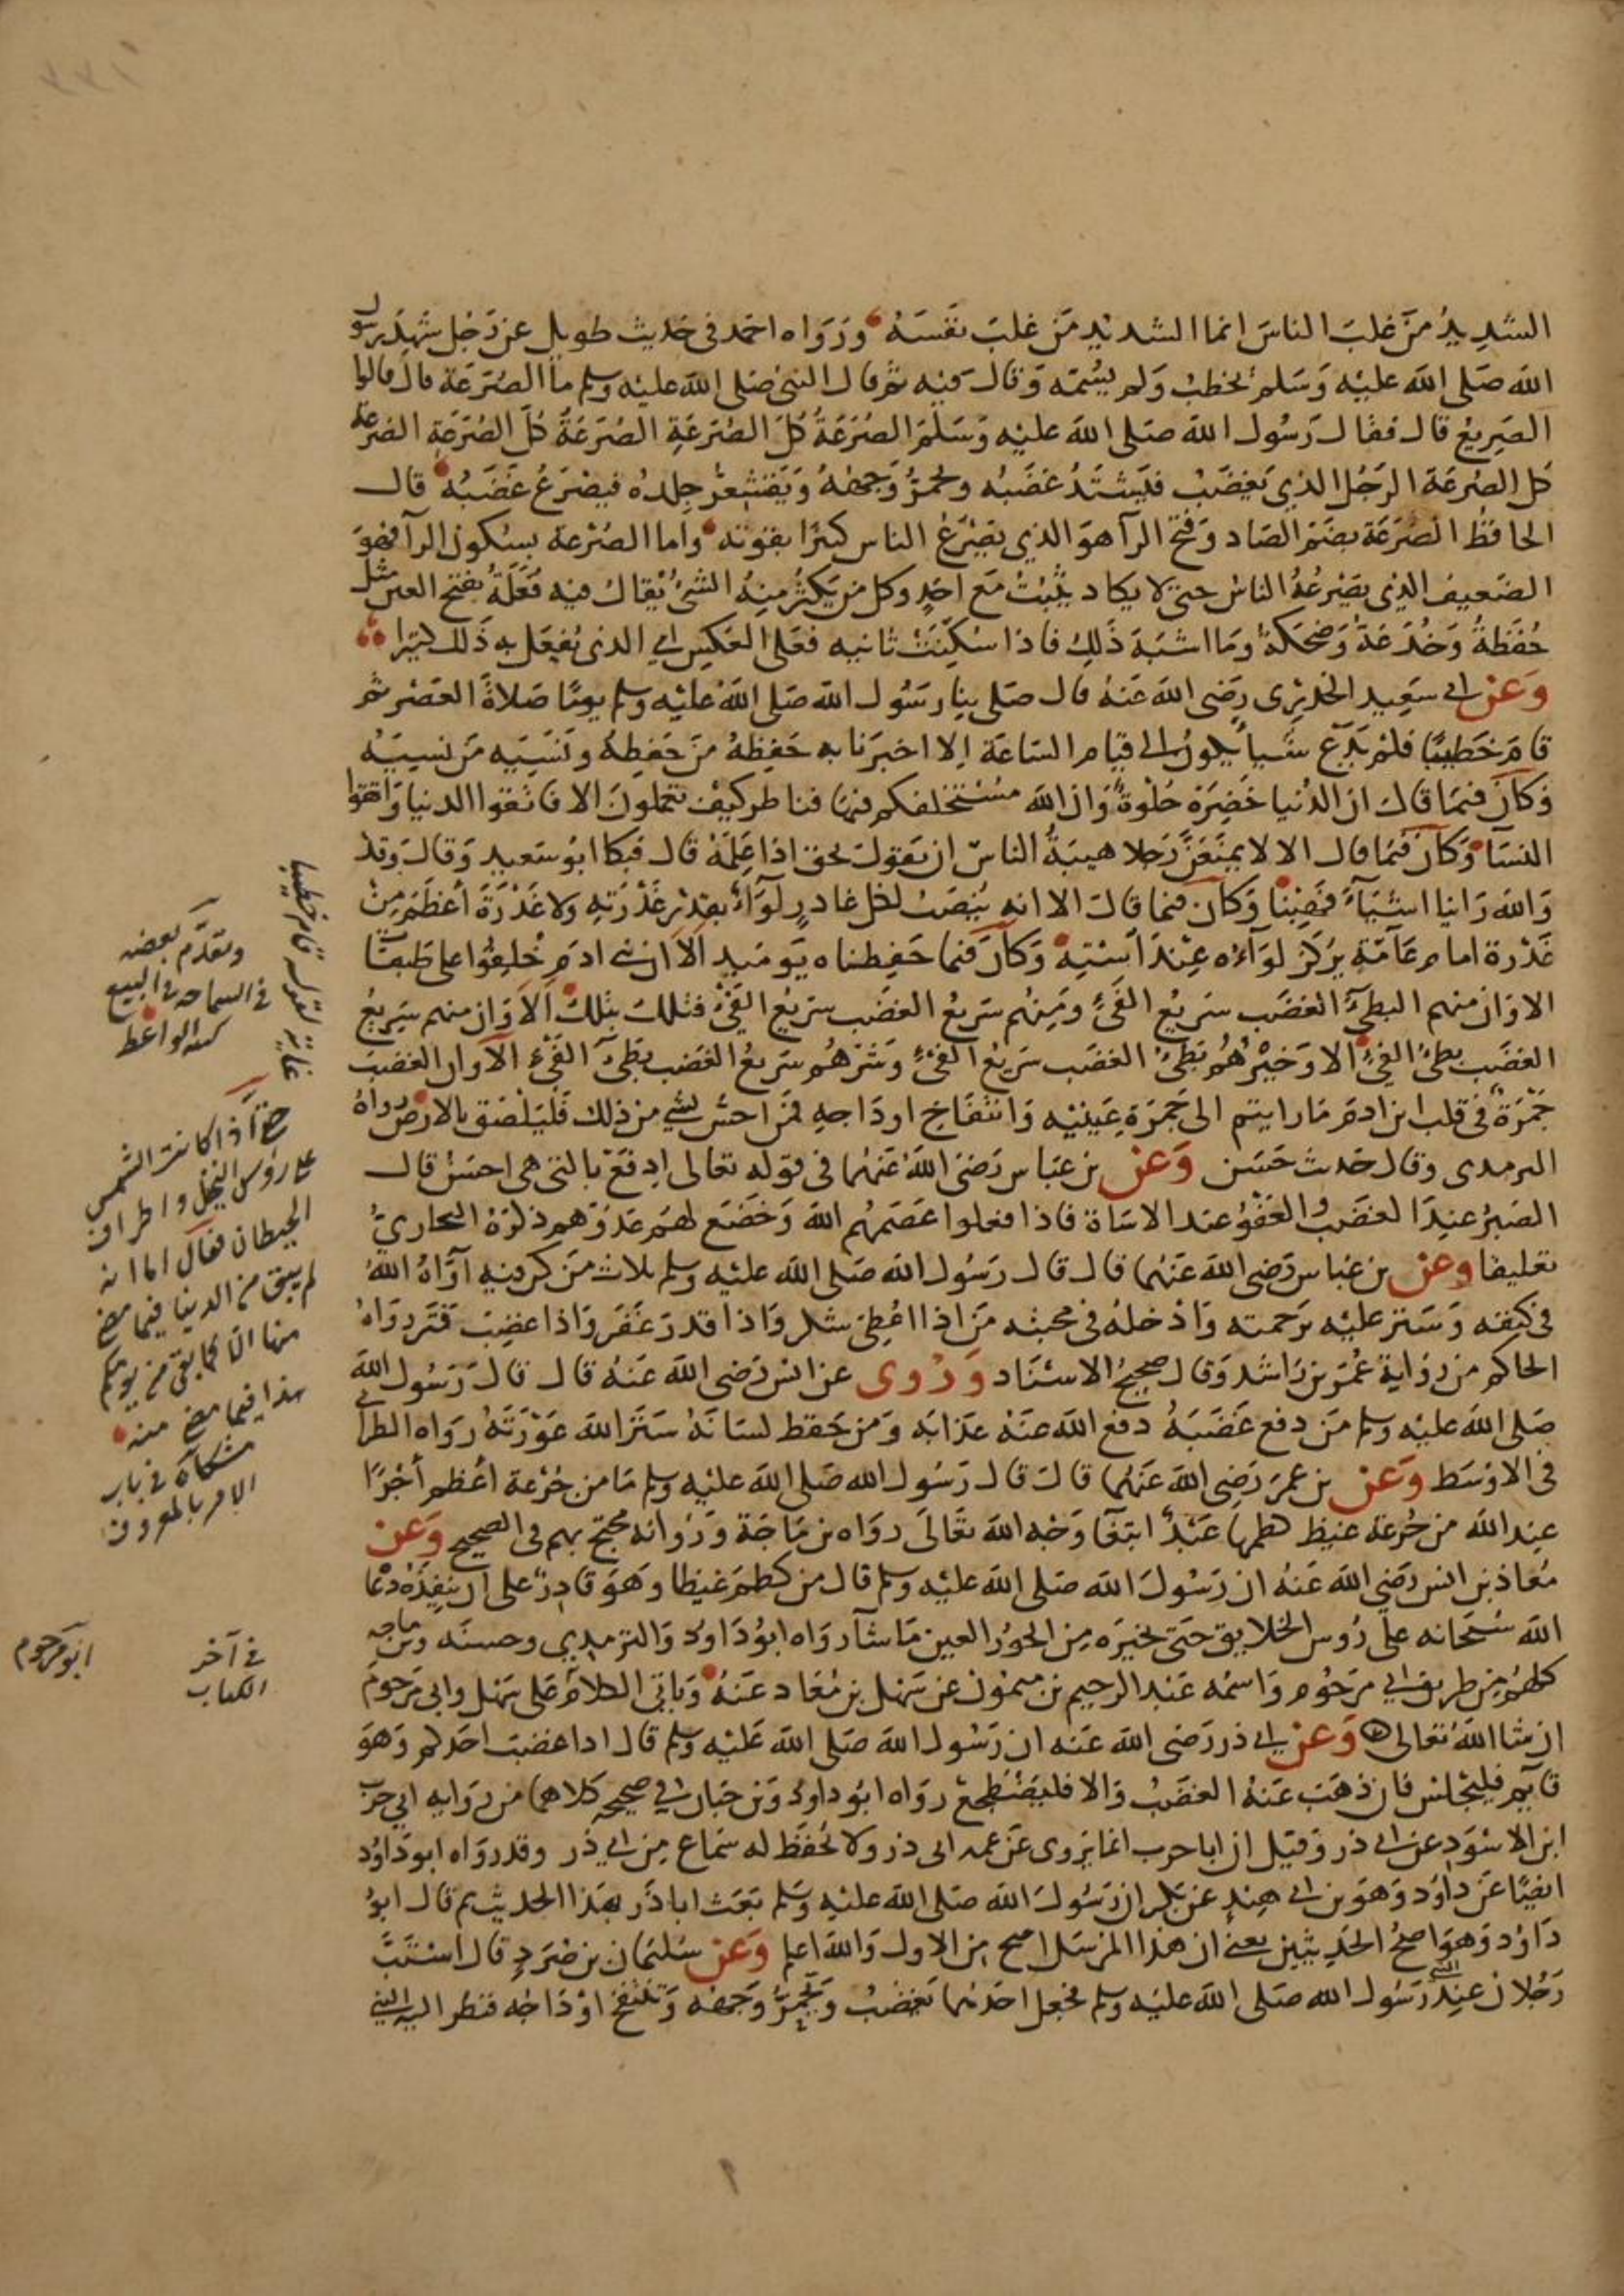 الشديد من غلب الناس انما الشديد من غلب نفسه ورواه احمد فى حديث طويل عن رجل شهد رسول
الله صلى الله عليه وسلم يخطب ولم يسمه وقال فيه ثم قال النبى صلى الله عليه وسلم ما الصرعة قال قالوا
الصريع قال فقال رسول الله صلى الله عليه وسلم الصرعة كل الصرعة الصرعة كل الصرعة الصرعة
كل الصرعة الرجل الذى يغضب فيشتد غضبه ويحمر وجهه ويقشعر جلده فيصرع غضبه قال
الحافظ الصرعة بضم الصاد وفتح الرآ هو الذى يصرع الناس كثيرا بقوته واما الصرعة بسكون الرآ فهو
الضعيف الذى يصرعه الناس حتى لا يكاد يثبت مع احد وكل من يكثر منه الشئ يقال فيه فعلة بفتح العين مثل
حفظة وخدعة وضحكة وما اشبه ذلك فاذا سكنت ثانيه فعلى العكس اي الذى يفعل به ذلك كثيرا
وعن ابى سعيد الخدرى رضى الله عنه قال صلى بنا رسول الله صلى الله عليه وسلم يوما صلاة العصر ثم
قام خطيبا فلم يدع شيأ يكون الى قيام الساعة الا اخبرنا به حفظه من حفظه ونسيه من نسيه
وكان فيما قال ان الدنيا خضرة حلوة وان الله مستخلفكم فيها فناظر كيف تعملون الا فاتقوا الدنيا واتقوا
النسآ وكان فيما قال الا لا يمنعن رجلا هيبة الناس ان يقول بحق اذا علمه قال فبكا ابو سعيد وقال وقد
والله راينا اشيآء فهبنا وكان فيما قال الا انه ينصب لكل غادر لوآء بقدر غدرته ولا غدرة أعظم من
غدرة امام عامة يركز لوآءه عند استه وكان فيما حفظناه يوميذ الا ان بنى ادم خلقوا على طبقات
الا وان منهم البطئ الغضب سريع الفئ ومنهم سريع الغضب سريع الفئ فتلك بتلك الا وان منهم سريع
الغضب بطئ الفئ الا وخيرهم بطئ الغضب سريع الفئ وشرهم سريع الغضب بطئ الفئ الا وان الغضب
جمرة فى قلب ابن ادم ما رايتم الى حمرة عينيه وانتفاخ اوداجه فمن احس بشئ من ذلك فليلصق بالارض رواه
الترمدى وقال حديث حسن وعن بن عباس رضى الله عنهما فى قوله تعالى ادفع بالتى هى احسن قال
الصبر عند الغضب والعفو عند الاساة فاذا فعلوا عصمهم الله وخضع لهم عدوهم ذكره البخارى
تعليقا وعن بن عباس رضى الله عنهما قال قال رسول الله صلى الله عليه وسلم ثلاث من كن فيه آواه الله
فى كنفه وستر عليه برحمته وادخله فى محبته من اذا اعطى شكر واذا قدر غفر واذا غضب فتر رواه
الحاكم من رواية عمر بن راشد وقال صحيح الاسناد وروى عن انس رضى الله عنه قال قال رسول الله
صلى الله عليه وسلم من دفع غضبه دفع الله عنه عذابه ومن حفظ لسانه ستر الله عورته رواه الطبرانى
فى الاوسط وعن بن عمر رضى الله عنهما قال قال رسول الله صلى الله عليه وسلم ما من جرعة اعظم أجرا
عند الله من جرعة غيظ كظمها عبد ابتغآ وجه الله تعالى رواه بن ماجة ورواته محتج بهم فى الصحيح وعن
معاذ بن انس رضى الله عنه ان رسول الله صلى الله عليه وسلم قال من كظم غيظا وهو قادر على ان ينفذه دعا
الله سبحانه على روس الخلايق حتى يخيره من الحور العين ما شآ رواه ابو داود والترمذي وحسنه وبن ماجه
كلهم من طريق ابي مرحوم واسمه عبد الرحيم بن ميمون عن سهل بن معاذ عنه وياتى الكلام على سهل وابى مرحوم
ان شا الله تعالى وعن ابى ذر رضى الله عنه ان رسول الله صلى الله عليه وسلم قال اذا غضب احدكم وهو
قآيم فليجلس فان ذهب عنه الغضب والا فليضطجع رواه ابو داود وبن حبان في صحيحه كلاهما من روايه ابي حرب
ابن الاسود عن ابى ذر وقيل ان ابا حرب انما يروى عن عمه ابى ذر ولا يحفظ له سماع من ابي ذر وقد رواه ابو داود
ايضا عن داود وهو بن ابى هند عن بكر ان رسول الله صلى الله عليه وسلم بعث ابا ذر بهذا الحديث ثم قال ابو
داود وهو اصح الحديثين يعنى ان هذا المرسل اصح من الاول والله اعلم وعن سليمان بن صرد قال استب
رجلان عند رسول الله صلى الله عليه وسلم فجعل احدهما يغضب ويحمر وجهه وتنتفخ اوداجه فنظر اليه النبى
وتقدم بعضه
فى السماحة فى البيع
حتى اذا كانت الشمس
على رؤس النخل واطراف
الحيطان فقال اما انه
لم يبق من الدنيا فيما مضى
منها الا كما بقى من يومكم
هذا فيما مضى منه
مشكاة فى باب
الامر بالمعروف
فى آخر
الكتاب
ابو مرحوم